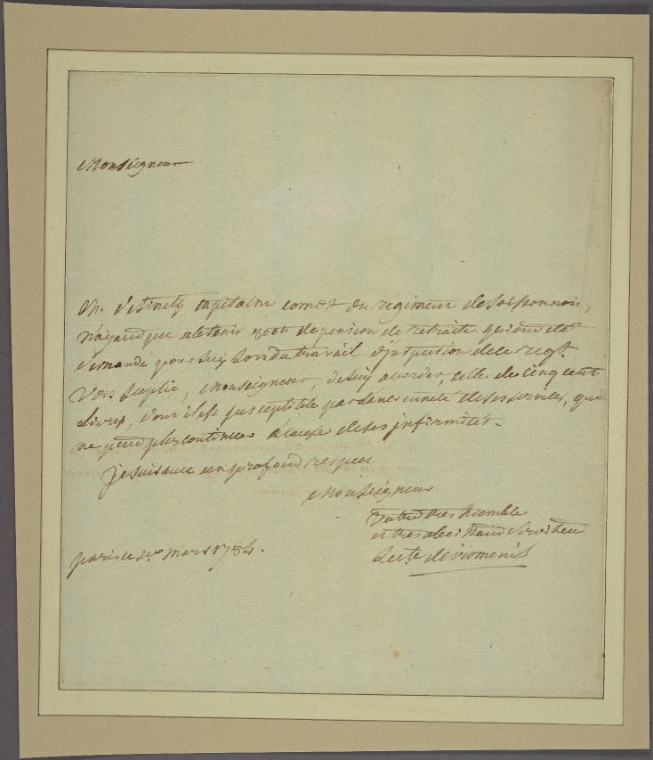 Monseigneur
M. capitaine comdt du regiment de Soissonnois,
n'ayant que obtenir 300# de pension de retraite qui ont été
demandé pour luy Lors du travail d'inspection de ce regt.
Vous Suplie, Monseigneur, de luy accorder, celle de Cinq cent
Livres, dont il est susceptible par Lancienneté de ses services, quil
ne peut plus continuer à cause de ses infirmités.
je suis avec un profond respect
Monseigneur
Votre tres humble
et tres obeissant Serviteur
Le cte de viomenil
paris le mars 1784.